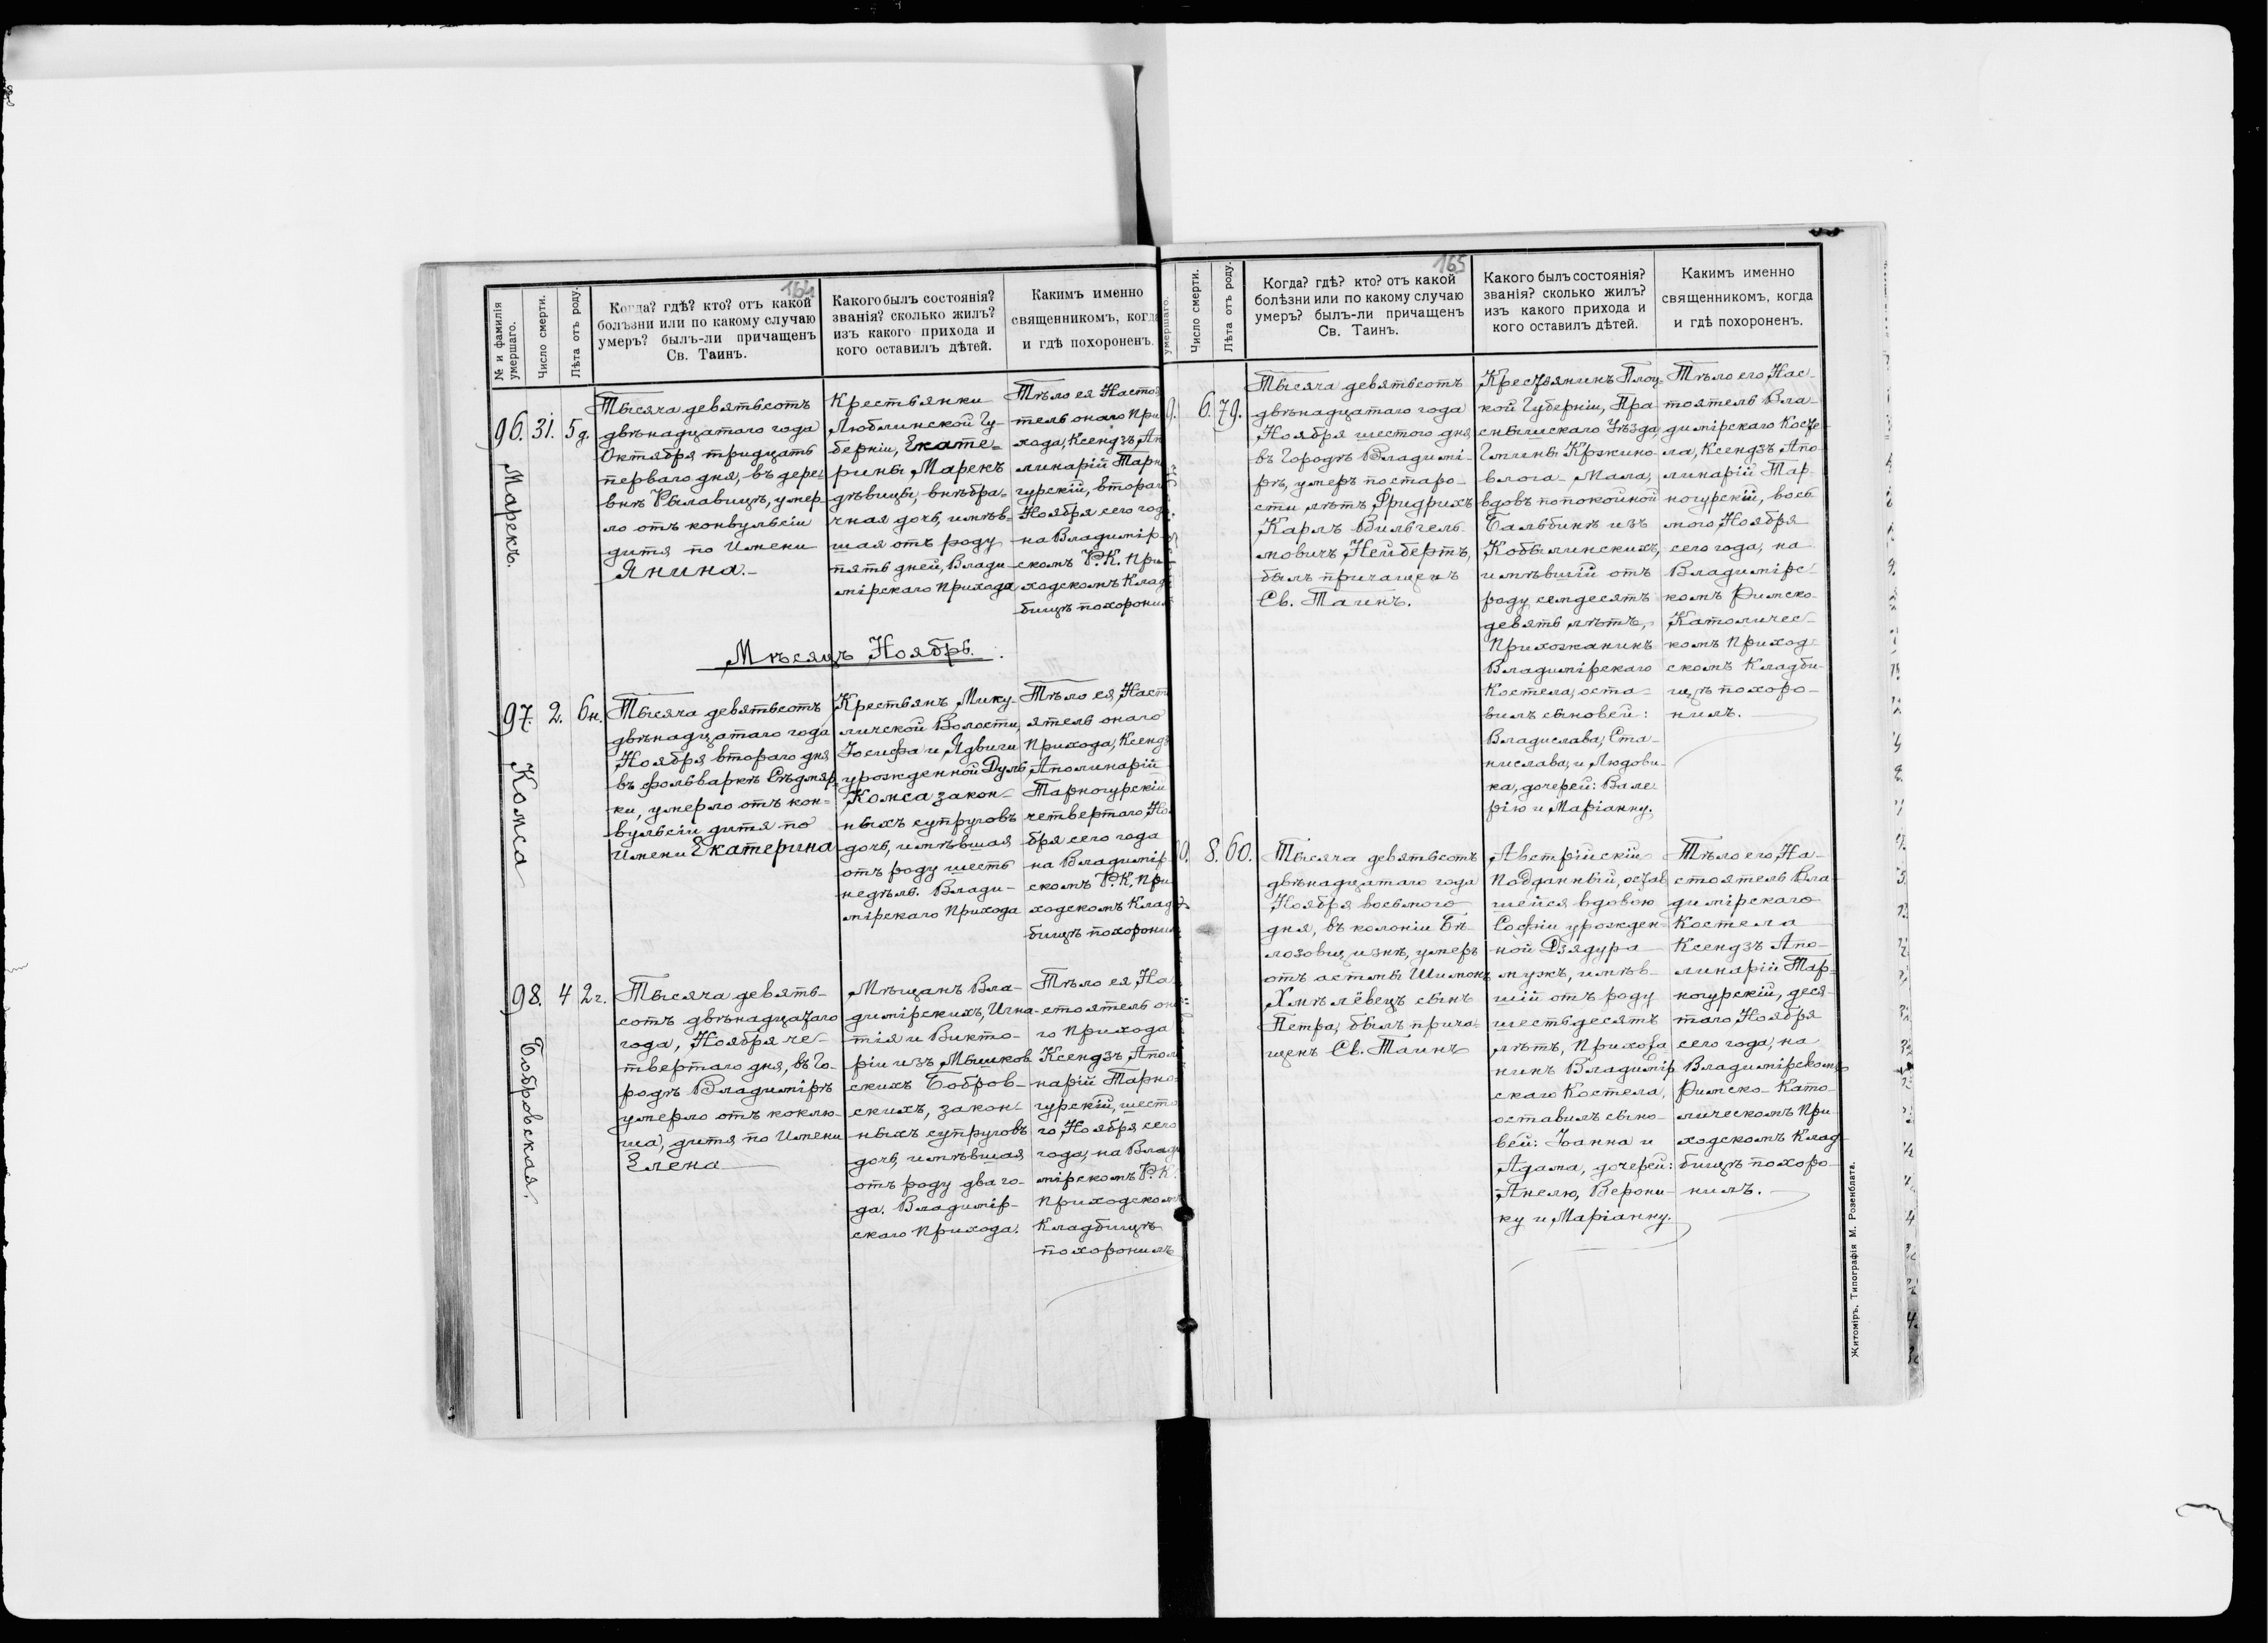 164
№ и фамилія умершаго.
Число смерти.
Лѣта отъ роду.
Когда? гдѣ? кто? отъ какой
болѣзни или по какому случаю
умеръ? былъ-ли причащенъ
Св. Таинъ.
Какого былъ состоянія?
званія? сколько жилъ?
изъ какого прихода и
кого оставилъ дѣтей.
Какимъ именно
священникомъ, когда
и гдѣ похороненъ.
96. 31. 5 д.
Марекъ.
Тысяча девятьсотъ
двѣнадцатаго года
Октября тридцать
перваго дня, въ дере-
внѣ Рылавицѣ, умер
ло отъ конвульсіи
дитя по имени
Янина.
Крестьянки
Люблинской Гу-
берніи, Екате-
рины Марекъ
дѣвицы, внѣбра-
чная дочь, имѣв-
шая отъ роду
пять дней, Влади-
мірскаго прихода
Тѣло ея Насто
тель онаго При
хода, Ксендзъ Ап
линарій Тарн
гурскій, втораг
Ноября сего год
на Владимір
скомъ Р.К. При
ходскомъ Клад
бищѣ похорони
Мѣсяцъ Ноябрь.
97. 2. 6 н.
Комса
Тысяча девятьсотъ
двѣнадцатаго года
Ноября втораго дня
въ фольваркѣ Сѣдмяр-
ки, умерло отъ кон-
вульсіи дитя по
имени Екатерина
Крестьянъ Мику-
личской Волости,
Іосифа и Ядвиги
урожденной Дуль
Комса закон-
ныхъ супруговъ
дочь, имѣвшая
отъ роду шесть
недѣль. Влади-
мірскаго Прихода
Тѣло ея, Наст
ятель онаго
Прихода, Ксендз
Аполинарій
Тарногурскій
четвертаго, Но
бря сего года
на Владимір
скомъ Р.К. При
ходскомъ Клад
бищѣ похорони
98. 4 2 г.
Бобровская.
Тысяча девять-
сотъ двѣнадцатаго
года, Ноября че-
твертаго дня, въ Го-
родѣ Владимірѣ
умерло отъ коклю-
ша, дитя по имени
Елена
Мѣщанъ Вла-
димірскихъ, Игна-
тія и Викто-
ріи изъ Мышков
скихъ Бобров-
скихъ, закон-
ныхъ супруговъ
дочь, имѣвшая
отъ роду два го-
да. Владимір-
скаго Прихода.
Тѣло ея На
стоятель он
го Прихода
Ксендзъ Апол
нарій Тарно-
гурскій, шесто
го, Ноября сего
года, на Влади
мірскомъ Р.К.
Приходском
Кладбищѣ
похоронилъ
165
умершаго.
Число смерти.
Лѣта отъ роду.
Когда? гдѣ? кто? отъ какой
болѣзни или по какому случаю
умеръ? былъ-ли причащенъ
Св. Таинъ.
Какого былъ состоянія?
званія? сколько жилъ?
изъ какого прихода и
кого оставилъ дѣтей.
Какимъ именно
священникомъ, когда
и гдѣ похороненъ.
9. 6. 79.
Тысяча девятьсотъ
двѣнадцатаго года
Ноября шестого дня,
въ Городѣ Владимі-
рѣ, умеръ по старо-
сти лѣтъ Фридрихъ
Карлъ Вильгель-
мовичъ Нейбертъ,
былъ причащенъ
Св. Таинъ.
Крестьянинъ Плоц-
кой Губерніи, Пра
снышскаго Уѣзда
Гмины Кржино-
влога-Мала,
вдовъ по покойной
Бальбинѣ изъ
Кобылинскихъ,
имѣвшій отъ
роду семдесятъ
девять лѣтъ,
Прихожанинъ
Владимірскаго
Костела, оста-
вилъ сыновей:
Владислава, Ста-
нислава, и Людови-
ка, дочерей: Вале-
рію и Маріанну.
Тѣло его, Нас-
тоятель Вла-
димірскаго Косте-
ла, Ксендзъ Апо-
линарій Тар-
ногурскій, вось
мого, Ноября
сего года, на
Владимірс-
комъ Римско-
Католичес-
комъ Приход-
скомъ Кладби-
щѣ похоро-
нилъ.
0. 8. 60.
Тысяча девятьсотъ
двѣнадцатаго года
Ноября восьмого
дня, въ колоніи Бѣ
лозовщизнѣ, умеръ
отъ астмы Шимонъ
Хмѣлёвецъ сынъ
Петра, былъ прича-
щенъ Св. Таинъ
Австрійскій
Подданный, остав
шейся вдовою
Софіи урожден-
ной Дзядура
мужъ, имѣв-
шій отъ роду
шестьдесятъ
лѣтъ, Прихожа
нинъ Владимір
скаго Костела,
оставилъ сыно-
вей: Іоанна и
Адама, дочерей:
Анелю, Верони-
ку и Маріанну.
Тѣло его, На-
стоятель Вла-
димірскаго
Костела
Ксендзъ Апо-
линарій Тар-
ногурскій, деся-
таго, Ноября
сего года, на
Владимірскомъ
Римско-Като-
лическомъ При-
ходскомъ Клад-
бищѣ похоро-
нилъ.
Житоміръ, Типографія М. Розенблата.